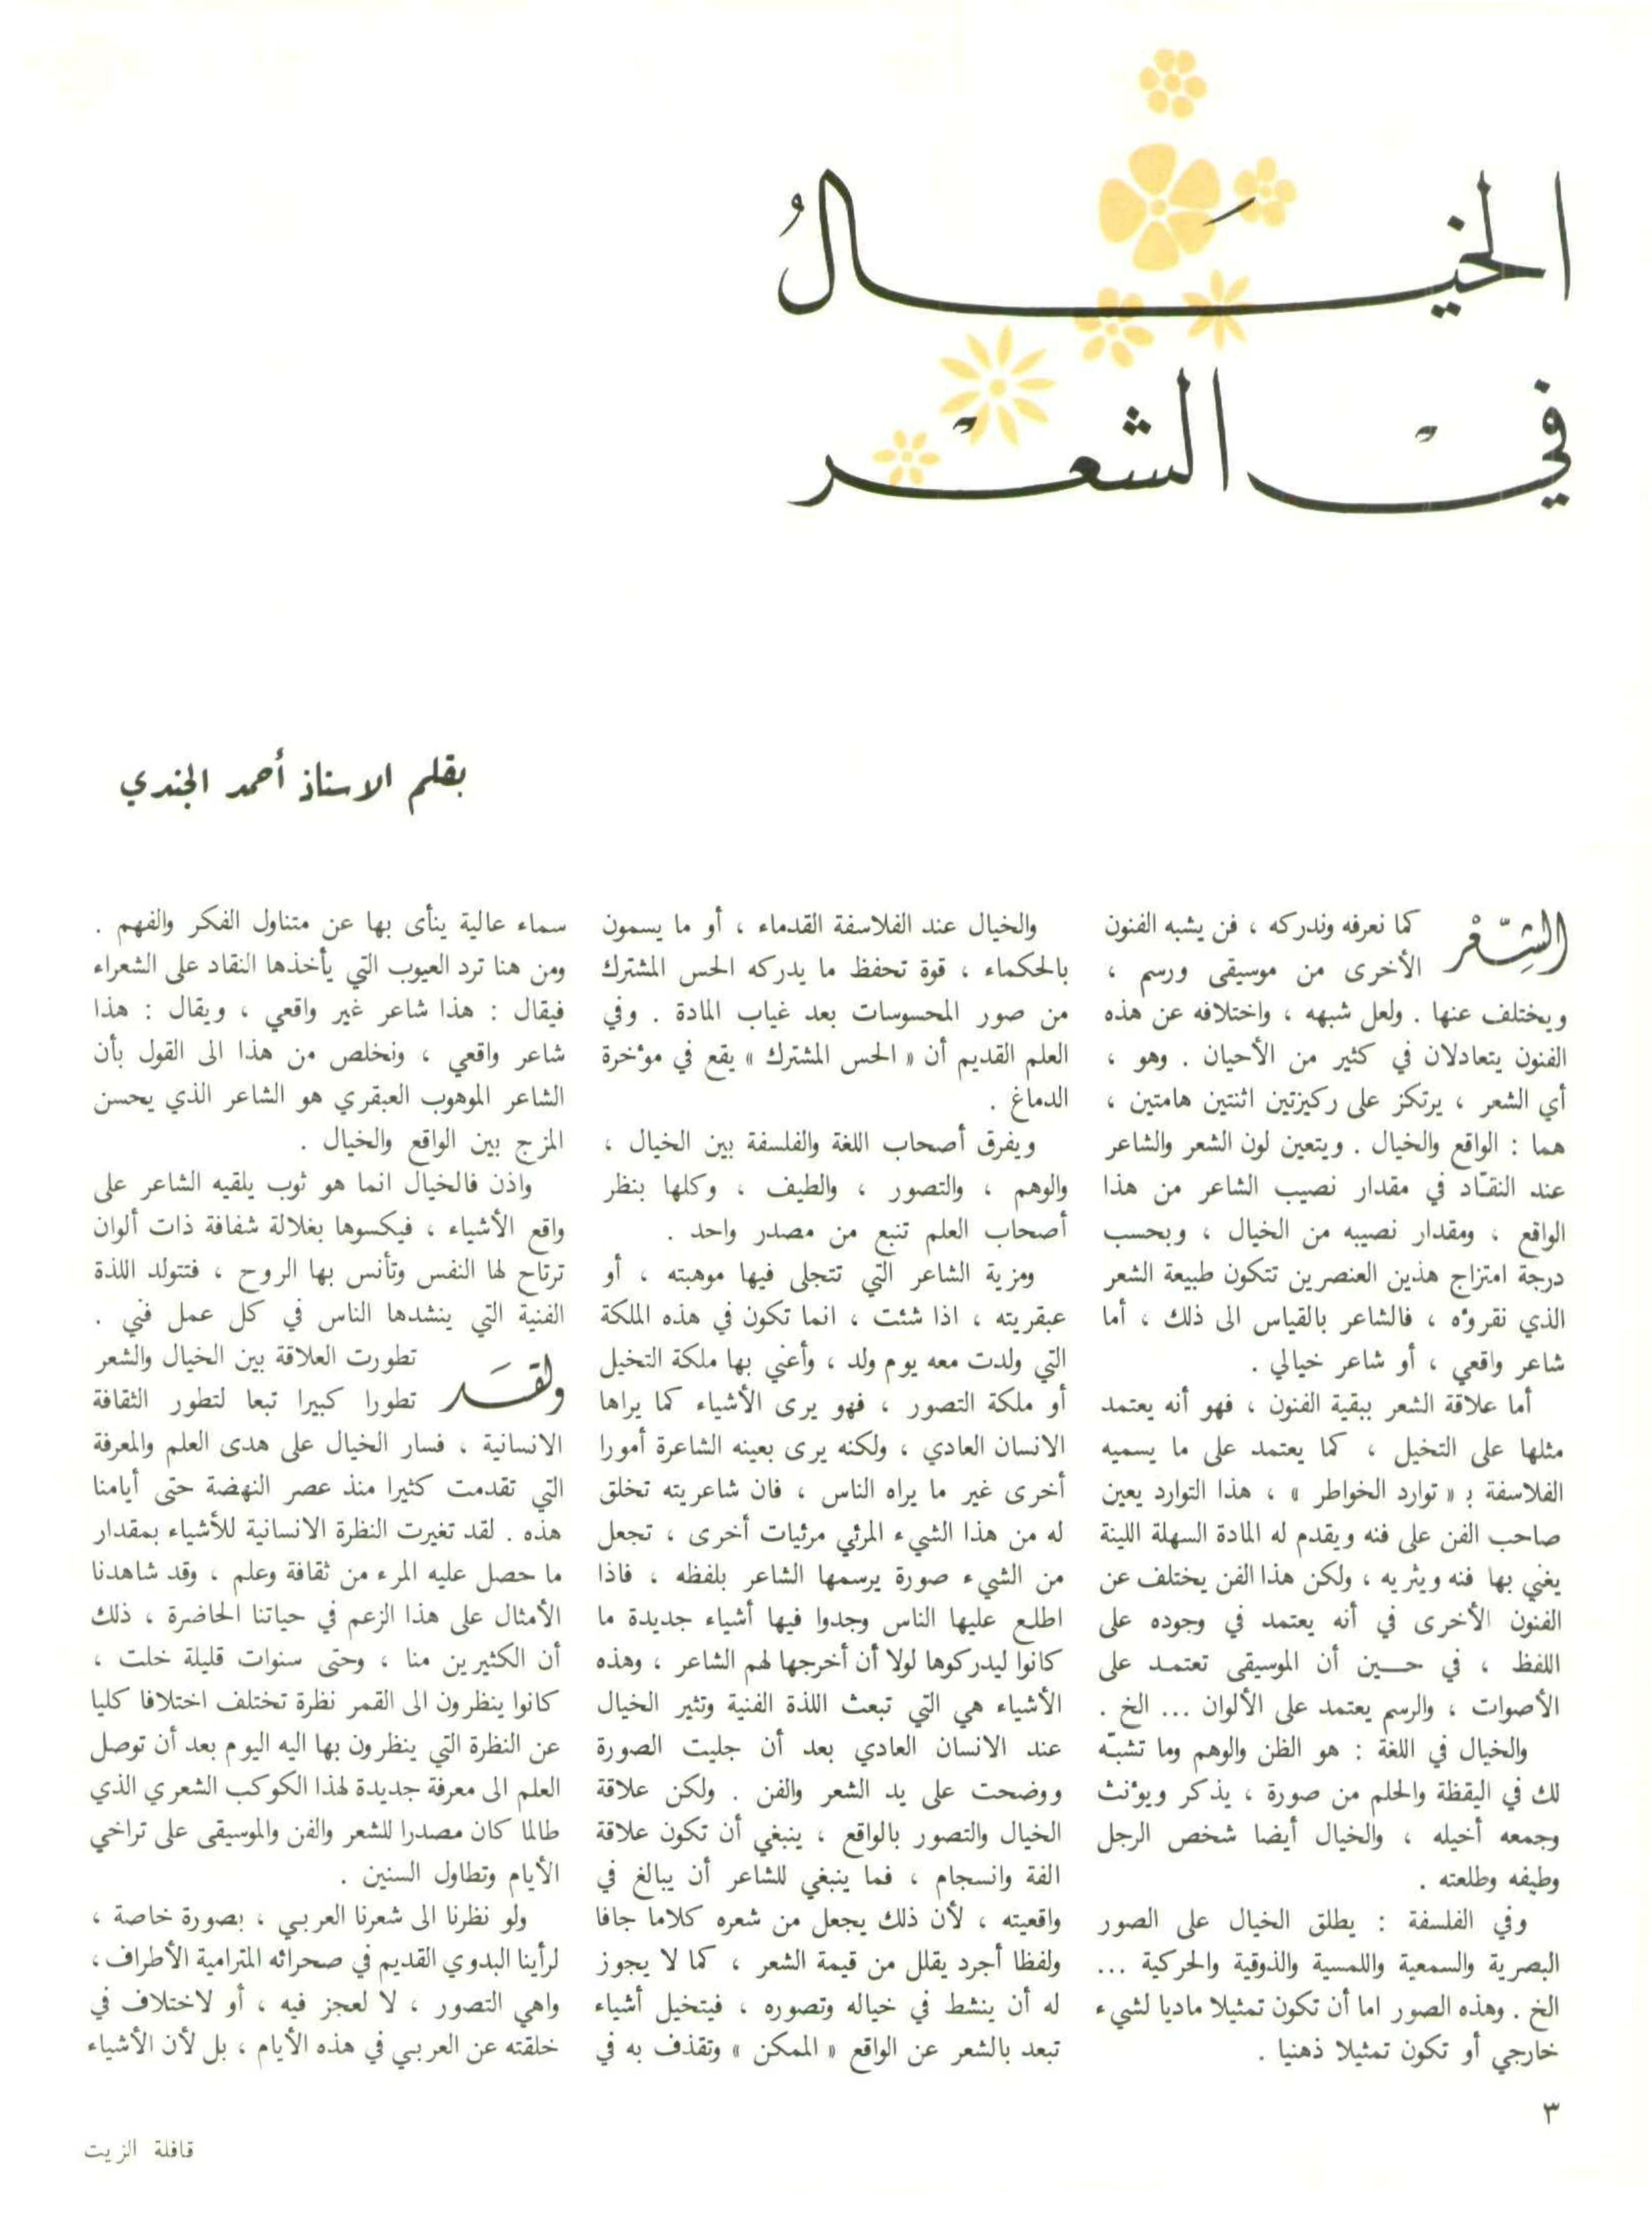 الخيَالُ
فيْ الشعْر
بقلم الاستاذ أحمد الجندي
الشِّعْر كما نعرفه وندركه ، فن يشبه الفنون
الأخرى من موسيقى ورسم ،
ويختلف عنها . ولعل شبهه ، واختلافه عن هذه
الفنون يتعادلان في كثير من الأحيان . وهو ،
أي الشعر ، يرتكز على ركيزتين اثنتين هامتين ،
هما : الواقع والخيال . ويتعين لون الشعر والشاعر
عند النقّاد في مقدار نصيب الشاعر من هذا
الواقع ، ومقدار نصيبه من الخيال ، وبحسب
درجة امتزاج هذين العنصرين تتكون طبيعة الشعر
الذي نقروٴه ، فالشاعر بالقياس الى ذلك ، أما
شاعر واقعي ، أو شاعر خيالي .
أما علاقة الشعر ببقية الفنون ، فهو أنه يعتمد
مثلها على التخيل ، كما يعتمد على ما يسميه
الفلاسفة بـ « توارد الخواطر » ، هذا التوارد يعين
صاحب الفن على فنه ويقدم له المادة السهلة اللينة
يغني بها فنه ويثريه ، ولكن هذا الفن يختلف عن
الفنون الأخرى في أنه يعتمد في وجوده على
اللفظ ، في حــين أن الموسيقى تعتمـد على
الأصوات ، والرسم يعتمد على الألوان ... الخ .
والخيال في اللغة : هو الظن والوهم وما تشبّه
لك في اليقظة والحلم من صورة ، يذكر ويوٴنث
وجمعه أخيله ، والخيال أيضا شخص الرجل
وطيفه وطلعته .
وفي الفلسفة : يطلق الخيال على الصور
البصرية والسمعية واللمسية والذوقية والحركية ...
الخ . وهذه الصور اما أن تكون تمثيلا ماديا لشيء
خارجي أو تكون تمثيلا ذهنيا .
والخيال عند الفلاسفة القدماء ، أو ما يسمون
بالحكماء ، قوة تحفظ ما يدركه الحس المشترك
من صور المحسوسات بعد غياب المادة . وفي
العلم القديم أن « الحس المشترك » يقع في موٴخرة
الدماغ .
ويفرق أصحاب اللغة والفلسفة بين الخيال ،
والوهم ، والتصور ، والطيف ، وكلها بنظر
أصحاب العلم تنبع من مصدر واحد .
ومزية الشاعر التي تتجلى فيها موهبته ، أو
عبقريته ، اذا شئت ، انما تكون في هذه الملكة
التي ولدت معه يوم ولد ، وأعني بها ملكة التخيل
أو ملكة التصور ، فهو يرى الأشياء كما يراها
الانسان العادي ، ولكنه يرى بعينه الشاعرة أمورا
أخرى غير ما يراه الناس ، فان شاعريته تخلق
له من هذا الشيء المرئي مرئيات أخرى ، تجعل
من الشيء صورة يرسمها الشاعر بلفظه ، فاذا
اطلع عليها الناس وجدوا فيها أشياء جديدة ما
كانوا ليدركوها لولا أن أخرجها لهم الشاعر ، وهذه
الأشياء هي التي تبعث اللذة الفنية وتثير الخيال
عند الانسان العادي بعد أن جليت الصورة
ووضحت على يد الشعر والفن . ولكن علاقة
الخيال والتصور بالواقع ، ينبغي أن تكون علاقة
الفة وانسجام ، فما ينبغي للشاعر أن يبالغ في
واقعيته ، لأن ذلك يجعل من شعره كلاما جافا
ولفظا أجرد يقلل من قيمة الشعر ، كما لا يجوز
له أن ينشط في خياله وتصوره ، فيتخيل أشياء
تبعد بالشعر عن الواقع « الممكن » وتقذف به في
سماء عالية ينأى بها عن متناول الفكر والفهم .
ومن هنا ترد العيوب التي يأخذها النقاد على الشعراء
فيقال : هذا شاعر غير واقعي ، ويقال : هذا
شاعر واقعي ، ونخلص من هذا الى القول بأن
الشاعر الموهوب العبقري هو الشاعر الذي يحسن
المزج بين الواقع والخيال .
واذن فالخيال انما هو ثوب يلقيه الشاعر على
واقع الأشياء ، فيكسوها بغلالة شفافة ذات ألوان
ترتاح لها النفس وتأنس بها الروح ، فتتولد اللذة
الفنية التي ينشدها الناس في كل عمل فني .
ولقَـد تطورت العلاقة بين الخيال والشعر
تطورا كبيرا تبعا لتطور الثقافة
الانسانية ، فسار الخيال على هدى العلم والمعرفة
التي تقدمت كثيرا منذ عصر النهضة حتى أيامنا
هذه . لقد تغيرت النظرة الانسانية للأشياء بمقدار
ما حصل عليه المرء من ثقافة وعلم ، وقد شاهدنا
الأمثال على هذا الزعم في حياتنا الحاضرة ، ذلك
أن الكثيرين منا ، وحتى سنوات قليلة خلت ،
كانوا ينظرون الى القمر نظرة تختلف اختلافا كليا
عن النظرة التي ينظرون بها اليه اليوم بعد أن توصل
العلم الى معرفة جديدة لهذا الكوكب الشعري الذي
طالما كان مصدرا للشعر والفن والموسيقى على تراخي
الأيام وتطاول السنين .
ولو نظرنا الى شعرنا العربي ، بصورة خاصة ،
لرأينا البدوي القديم في صحرائه المترامية الأطراف ،
واهي التصور ، لا لعجز فيه ، أو لاختلاف في
خلقته عن العربي في هذه الأيام ، بل لأن الأشياء
٣
قافلة الزيت